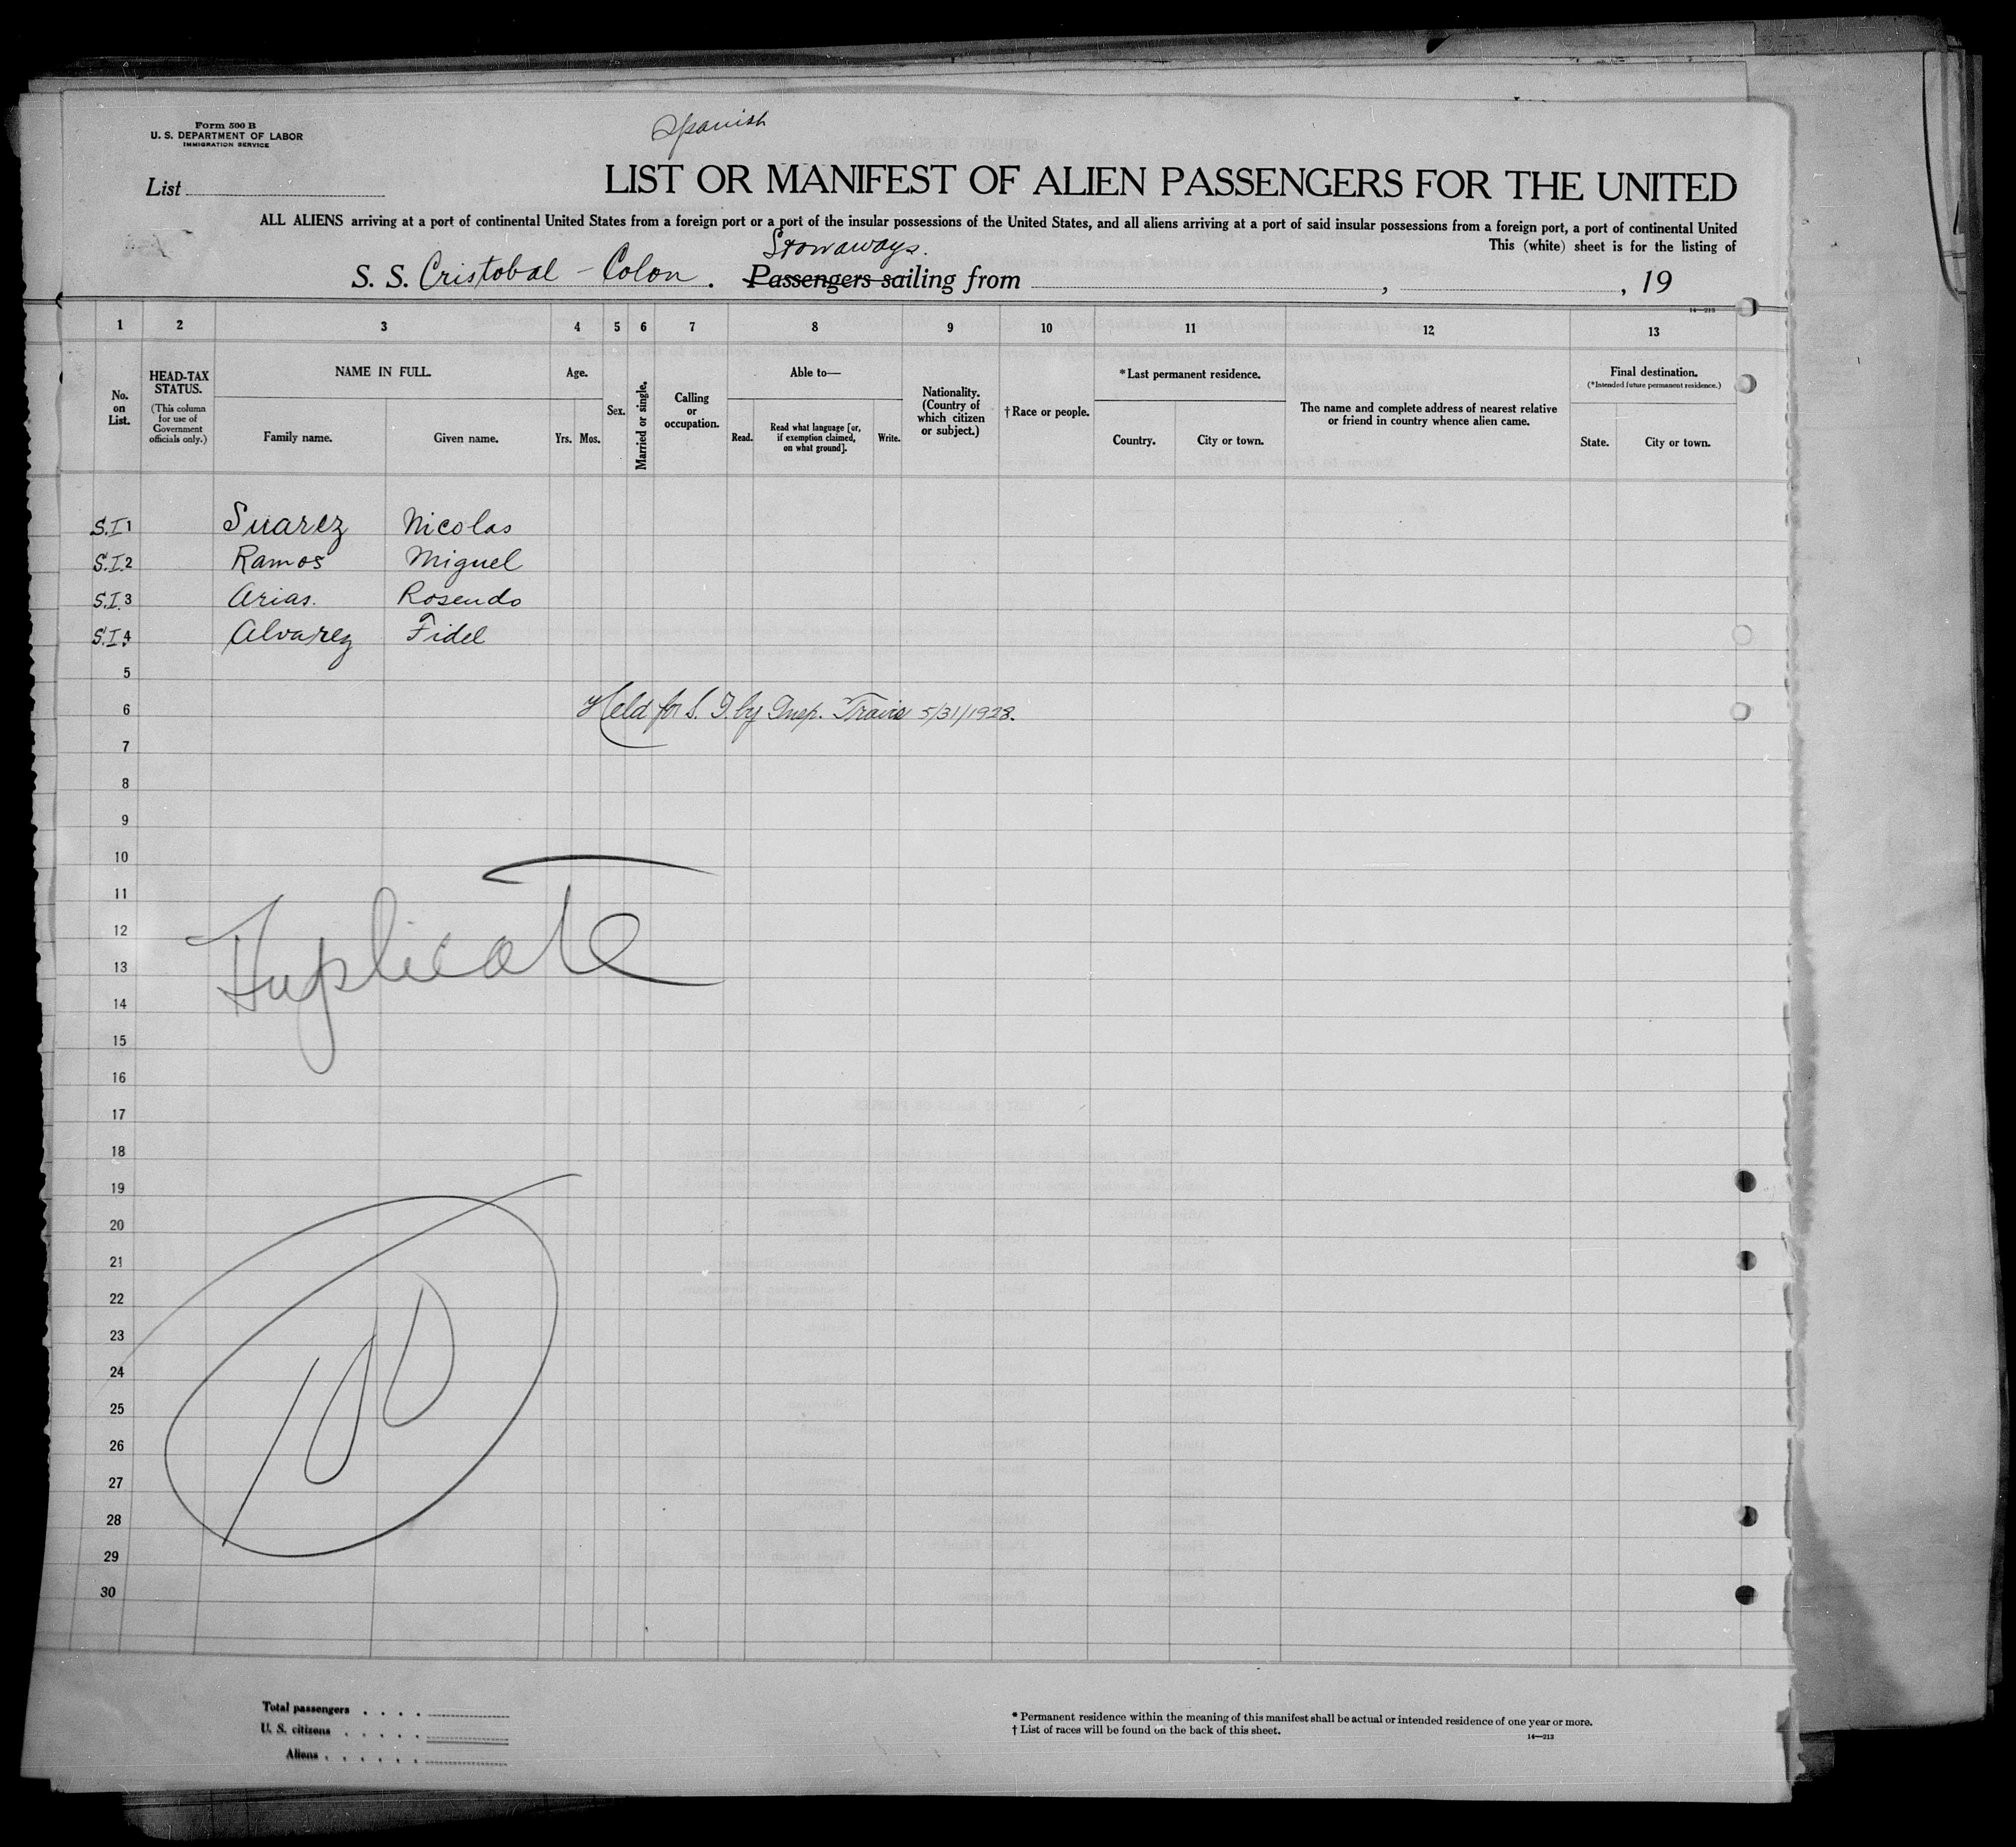 Form 500 B
U. S. DEPARTMENT OF LABOR
IMMIGRATION SERVICE
Spanish
List
LIST OR MANIFEST OF ALIEN PASSENGERS FOR THE UNITED
ALL ALIENS arriving at a port of continental United States from a foreign port or a port of the insular possessions of the United States, and all aliens arriving at a port of said insular possessions from a foreign port, a port of continental United
This (white) sheet is for the listing of
Stowaways.
S. S. Cristobal - Colon. Passengers sailing from , , 19
14—213
1 2 3 4 5 6 7 8 9 10 11 12 13
No. on List.
HEAD-TAX STATUS.
(This column for use of Government officials only.)
NAME IN FULL.
Family name. Given name.
Age.
Yrs. Mos.
Sex.
Married or single.
Calling or occupation.
Able to—
Read. Read what language [or, if exemption claimed, on what ground]. Write.
Nationality. (Country of which citizen or subject.)
†Race or people.
*Last permanent residence.
Country. City or town.
The name and complete address of nearest relative or friend in country whence alien came.
Final destination.
(*Intended future permanent residence.)
State. City or town.
S.I. 1 Suarez Nicolas
S.I. 2 Ramos Miguel
S.I. 3 Arias. Rosendo
S.I. 4 Alvarez Fidel
5
6 Held for S. I. by Insp. Travis 5/31/1928.
7
8
9
10
11
12 Duplicate
13
14
15
16
17
18
19
20
21
22
23
24 100
25
26
27
28
29
30
Total passengers . . . .
U. S. citizens . . . . .
Aliens . . . . . .
* Permanent residence within the meaning of this manifest shall be actual or intended residence of one year or more.
† List of races will be found on the back of this sheet.
14—213